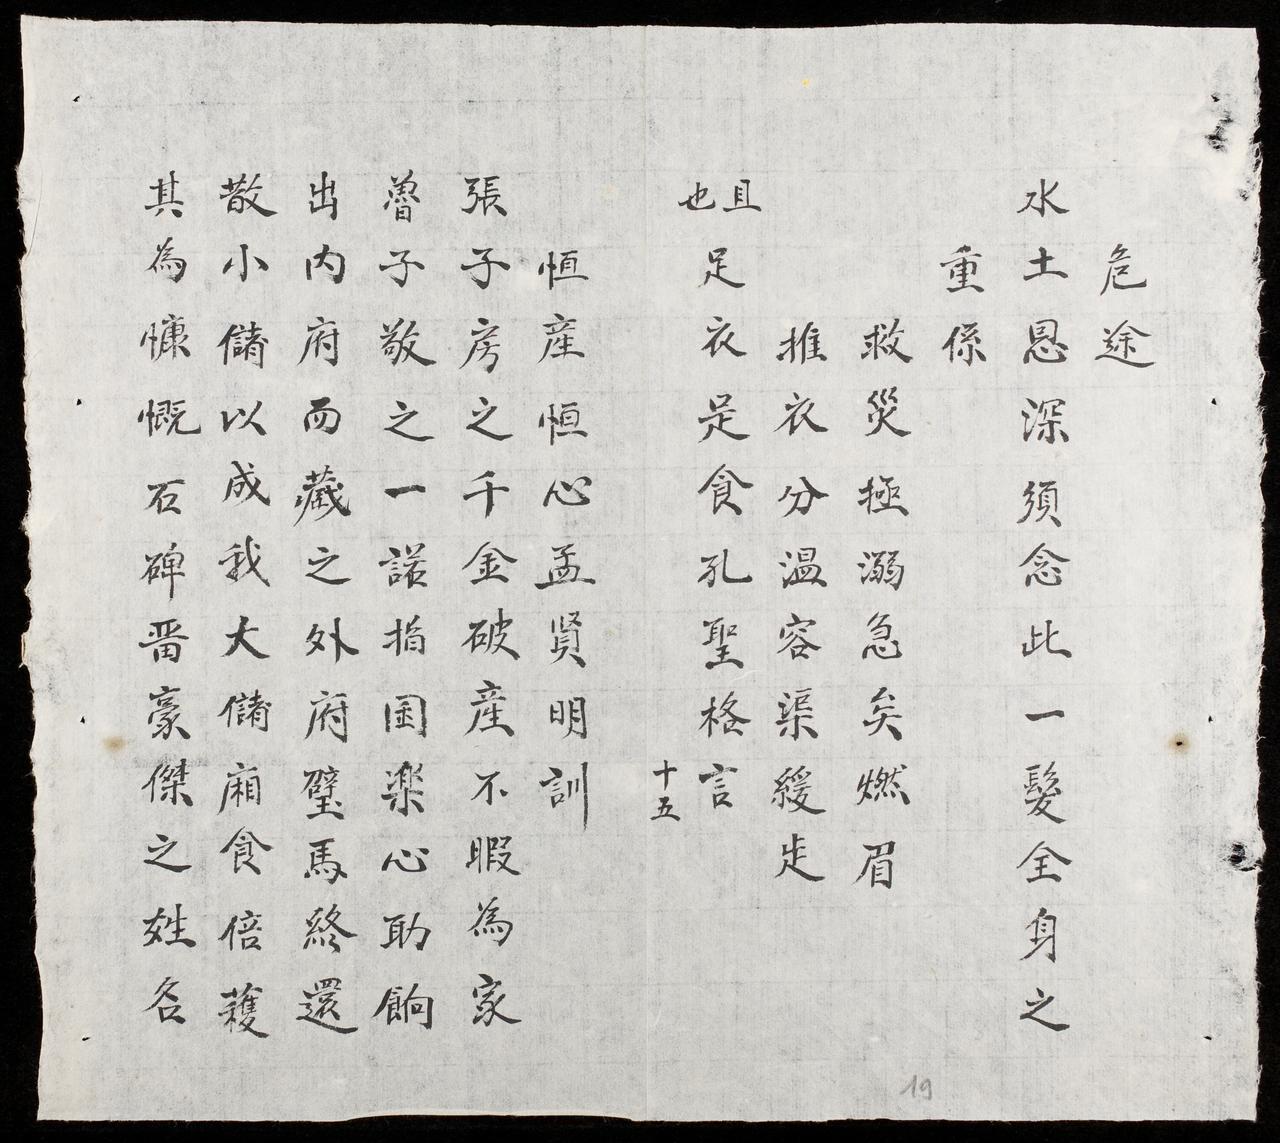 危途
水土恩深須念此一髮全身之
重係
救災極溺急矣燃眉
推衣分温容渠緩歨
且也
足衣足食孔聖格言
十五
恒産恒心孟賢明訓
張子房之千金破産不暇為家
魯子敬之一諾指囷楽心助餉
出内府而藏之外府璧馬終還
散小儲以成我大儲廂食倍蒦
其為慷慨石碑畱豪傑之姓名
19